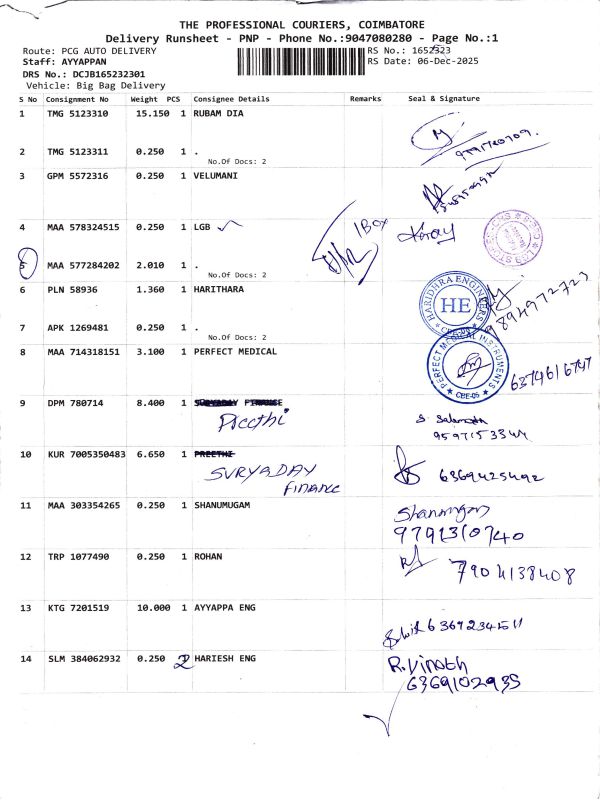 THE PROFESSIONAL COURIERS, COIMBATORE
Delivery Runsheet - PNP - Phone No.:9047080280 - Page No.:1
Route: PCG AUTO DELIVERY
RS No.: 1652323
Staff: AYYAPPAN
RS Date: 06-Dec-2025
DRS No.: DCJB165232301
Vehicle: Big Bag Delivery
S No Consignment No Weight PCS Consignee Details Remarks Seal & Signature
1 TMG 5123310 15.150 1 RUBAM DIA
2 TMG 5123311 0.250 1 .
No.Of Docs: 2
3 GPM 5572316 0.250 1 VELUMANI
4 MAA 578324515 0.250 1 LGB
1 BOX
5 MAA 577284202 2.010 1 .
No.Of Docs: 2
6 PLN 58936 1.360 1 HARITHARA
HARIDHRA ENGINEERS
HE
9894972723
7 APK 1269481 0.250 1 .
No.Of Docs: 2
8 MAA 714318151 3.100 1 PERFECT MEDICAL
PERFECT MEDICAL INSTRUMENTS
CBE-05
6374616747
9 DPM 780714 8.400 1 SURYADAY FINANCE
Preethi
10 KUR 7005350483 6.650 1 PREETHI
SURYADAY
FINANCE
6369425492
11 MAA 303354265 0.250 1 SHANUMUGAM
Shanmugam
9791310740
12 TRP 1077490 0.250 1 ROHAN
7904138408
13 KTG 7201519 10.000 1 AYYAPPA ENG
14 SLM 384062932 0.250 2 HARIESH ENG
R.Vinoth
6369102935